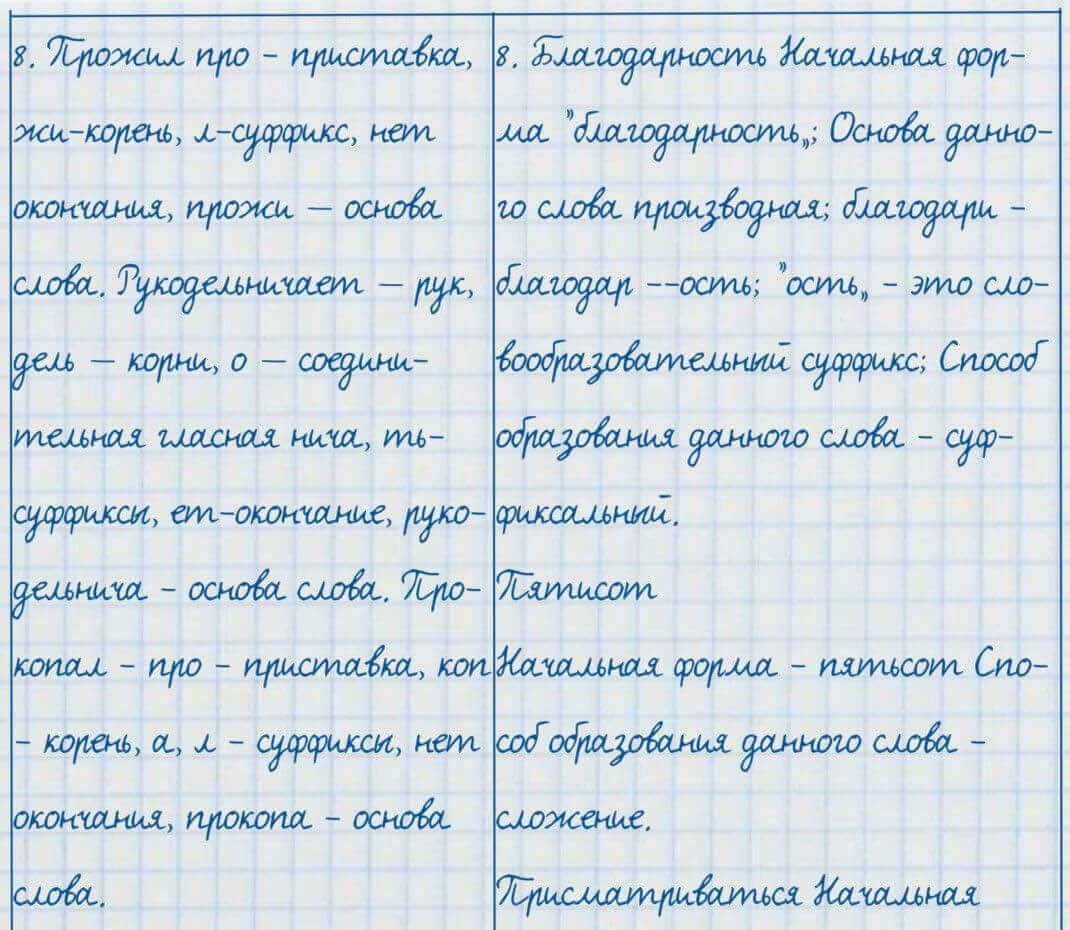 8. Прожил про – приставка,
жи-корень, л-суффикс, нет
окончания, прожи — основа
слова. Рукодельничает — рук,
дель — корни, о — соедини-
тельная гласная нича, ть-
суффиксы, ет-окончание, руко-
дельнича – основа слова. Про-
копал – про – приставка, коп
– корень, а, л – суффиксы, нет
окончания, прокопа – основа
слова.
8. Благодарность Начальная фор-
ма "благодарность„; Основа данно-
го слова производная; благодари –
благодар --ость; "ость„ – это сло-
вообразовательный суффикс; Способ
образования данного слова – суф-
фиксальный.
Пятисот
Начальная форма – пятьсот Спо-
соб образования данного слова –
сложение.
Присматриваться Начальная